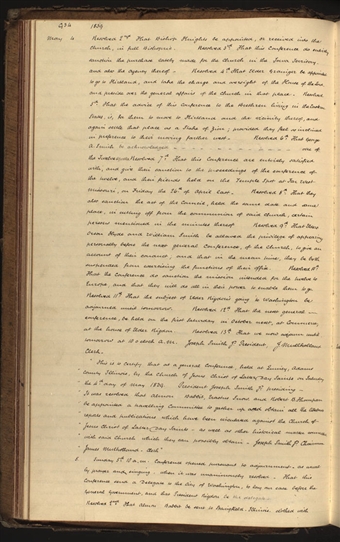 434 1839
May 4 Resolved 2nd That Bishop Knights be appointed, or received into the
church, in full Bishopric. Resolved 3rd That this Conference do entirely
sanction the purchase lately made for the Church in the Iowa Territory,
and also the Agency thereof. Resolved 4th That Elder Granger be appointed
to go to Kirtland, and take the charge and oversight of the House of the Lord,
and preside over the general affairs of the Church in that place. Resolved
5th That the advice of this Conference to the Brethren living in the Eastern
States, is, for them to move to Kirtland and the vicinity thereof, and
again settle that place as a Stake of Zion; provided they feel no inclination
in preference to their moving further west. Resolved 6th That George
A. Smith be acknowledged one of
the Twelve Resolved 7th That this Conference are entirely satisfied
with, and give their sanction to the proceedings of the conference of
the twelve, and their friends held on the Temple Spot at Far West
Missouri, on Friday the 26th of April last. Resolved 8th That they
also sanction the act of the Council, held the same date and same
place, in cutting off from the communion of said Church, certain
persons mentioned in the minutes thereof. Resolved 9th That Elders
Orson Hyde and William Smith be allowed the privilege of appearing
personally before the next general Conference, of the Church, to give an
account of their conduct, and that in the mean time, they be both
suspended from exercising the functions of their office. Resolved 10th
That the Conference do sanction the mission intended for the twelve to
Europe, and that they will do all in their power to enable them to go.
Resolved 11th That the subject of Elder Rigdon's going to Washington be
adjourned until tomorrow. Resolved 12th That the next general
conference, be held on the first Saturday in October next, at Commerce,
at the house of Elder Rigdon. Resolved 13th That we now adjourn until
tomorrow at 10 o'clock A.M. Joseph Smith Jr President, J Mulholland
Clerk.
This is to certify that at a general Conference, held at Quincy, Adams
County, Illinois, by the Church of Jesus Christ of Latter Day Saints on Saturday
the 4th day of May 1839. President Joseph Smith Jr presiding
It was resolved that Almon Babbit, Erastus Snow and Robert B. Thompson
be appointed a travelling Committee to gather up and obtain all the libelous
reports and publications which have been circulated against the Church of
Jesus Christ of Latter Day Saints. as well as other historical matter connected
with said Church which they can possibly obtain. Joseph Smith Jr Chairman
James Mulholland. Clerk
5 Sunday 5th 10 a.m. Conference opened pursuant to adjournment. as usual
by prayer and singing. when it was unanimously resolved. That this
Conference send a Delegate to the City of Washington, to lay our case before the
General Government, and that President Rigdon be the delegate.
Resolved 2nd That Almon Babbit be sent to Springfield, Illinois clothed with